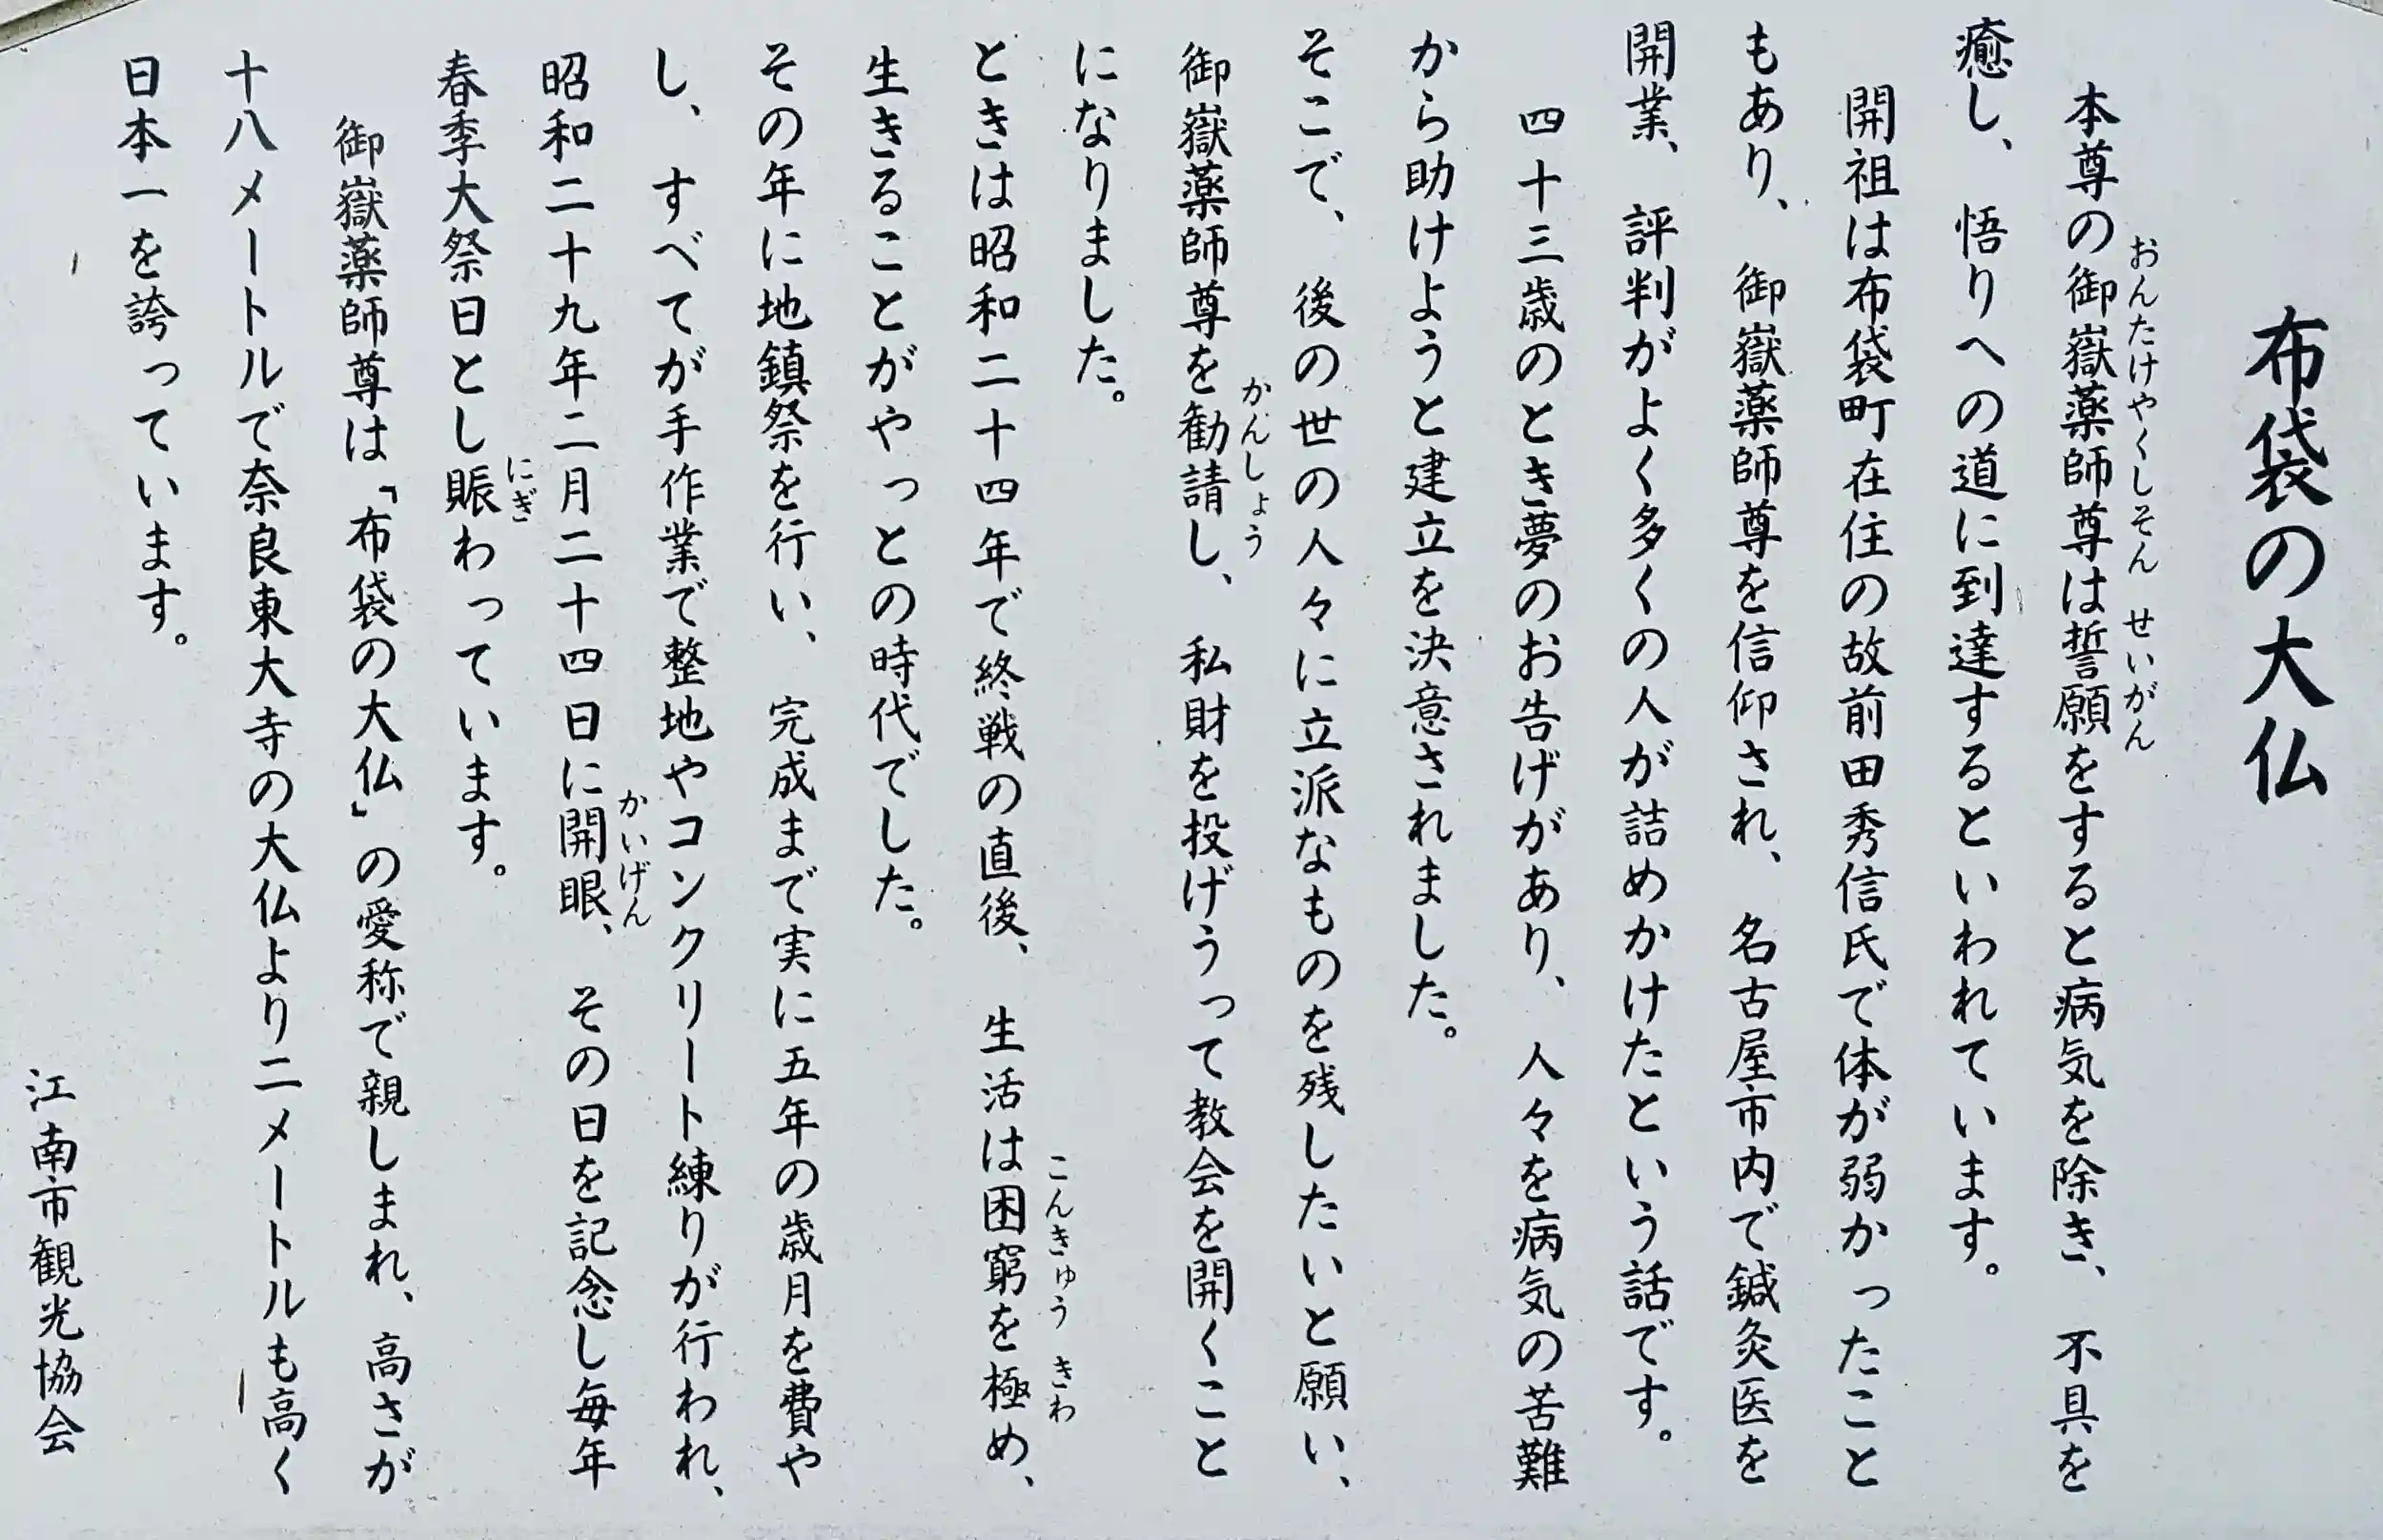 布袋の大仏
本尊の御嶽薬師尊は誓願をすると病気を除き、不具を
おんたけやくしそん せいがん
癒し、悟りへの道に到達するといわれています。
開祖は布袋町在住の故前田秀信氏で体が弱かったこと
もあり、御嶽薬師尊を信仰され、名古屋市内で鍼灸医を
開業、評判がよく多くの人が詰めかけたという話です。
四十三歳のとき夢のお告げがあり、人々を病気の苦難
から助けようと建立を決意されました。
そこで、後の世の人々に立派なものを残したいと願い、
御嶽薬師尊を勧請し、私財を投げうって教会を開くこと
かんしょう
になりました。
ときは昭和二十四年で終戦の直後、生活は困窮を極め、
こんきゅう きわ
生きることがやっとの時代でした。
その年に地鎮祭を行い、完成まで実に五年の歳月を費や
し、すべてが手作業で整地やコンクリート練りが行われ、
昭和二十九年二月二十四日に開眼、その日を記念し毎年
かいげん
春季大祭日とし賑わっています。
にぎ
御嶽薬師尊は「布袋の大仏」の愛称で親しまれ、高さが
十八メートルで奈良東大寺の大仏より二メートルも高く
日本一を誇っています。
江南市観光協会